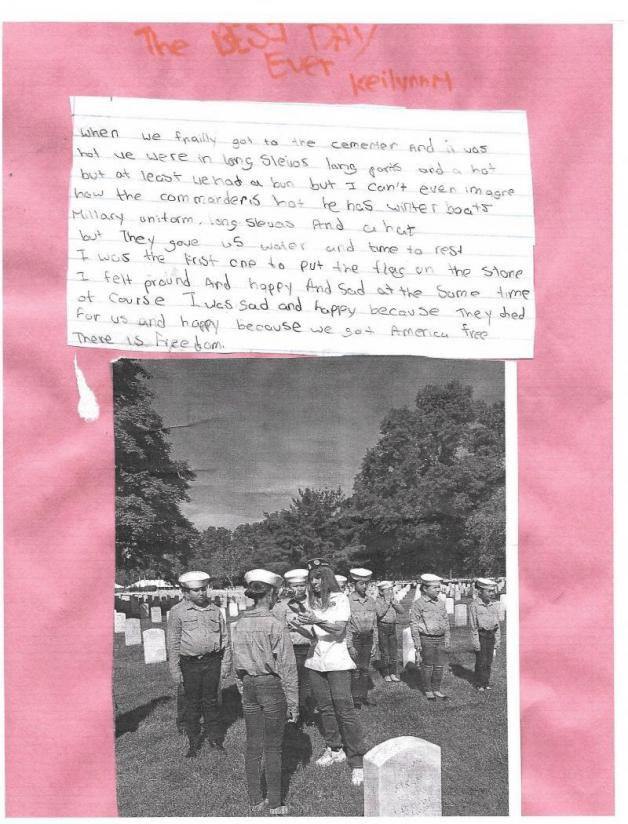 The BEST DAY
Ever
Keilynn M
when we finally got to the cementer And it was
hot we were in long Slevos long pants and a hat
but at least we had a bun but I can't even imagre
how the commarder is hot he has winter boats
Millary uniform, long Slevas And a hat
but They gave us water and time to rest
I was the first one to put the flag on the Stone
I felt pround And happy And Sad at the Same time
of Course I was sad and happy because They died
For us and happy because we got America free
There is Freedom.